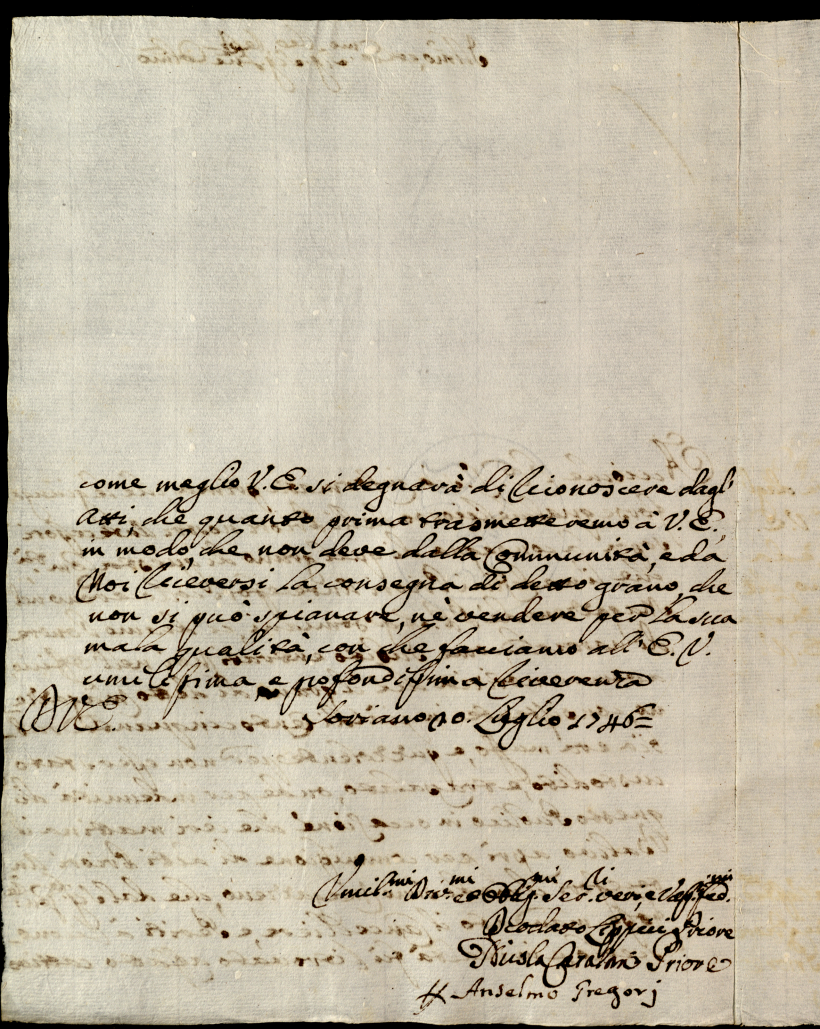 come meglio V. E. si degnarà di riconoscere dagl'
Atti, che quanto prima trasmetteremo à V. E.,
in modo, che non deve dalla Communità, e da
Noi riceversi la consegna di detto grano, che
non si può spianare, nè vendere per la sua
mala qualità, con che facciamo all' E. V.
umilissima, e profondissima riverenza
D V E Soriano 10. Luglio 1746
Umil.mi Div.mi e Oblig.mi Ser.ri veri, e Vass.
Priore
Nicola Priore
Anselmo Gregorj